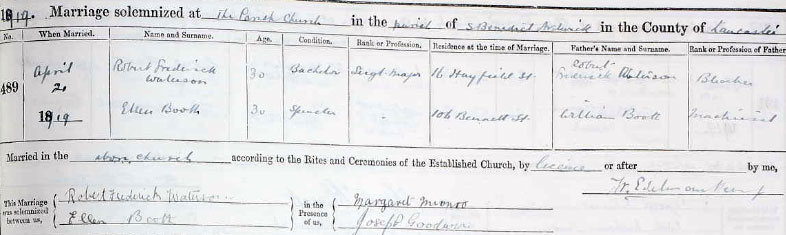 1919. Marriage solemnized at The Parish Church in the parish of S Benedict Ardwick in the County of Lancaster
No. When Married. Name and Surname. Age. Condition. Rank or Profession. Residence at the time of Marriage. Father's Name and Surname. Rank or Profession of Father
489 April 21 1919 Robert Frederick Waterson 30 Bachelor Sergt Major 16 Hayfield St. Robert Frederick Waterson Bleacher
Ellen Booth 30 Spinster - 106 Bennett St. William Booth Machinist
Married in the above church according to the Rites and Ceremonies of the Established Church, by licence or after by me,
This Marriage was solemnized between us, Robert Frederick Waterson Ellen Booth in the Presence of us, Margaret Munro Joseph Goodwin